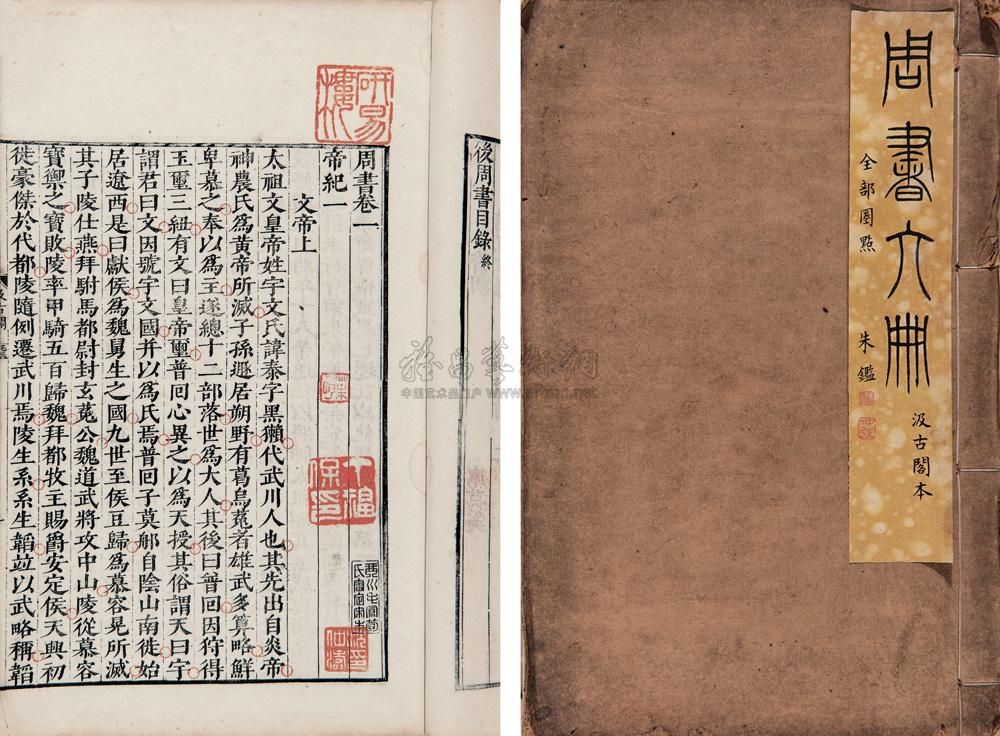 周書六冊
汲古閣本
全部圈點
朱鑑
後周書目錄終
研易樓
周書卷一
帝紀一
文帝上
太祖文皇帝姓宇文氏諱泰字黑獺代武川人也其先出自炎帝
神農氏爲黃帝所滅子孫遯居朔野有葛烏菟者雄武多算略鮮
卑慕之奉以爲主遂總十二部落世爲大人其後曰普回因狩得
玉璽三紐有文曰皇帝璽普回心異之以爲天授其俗謂天曰宇
謂君曰文因號宇文國并以爲氏焉普回子莫那自陰山南徙始
居遼西是曰獻侯爲魏舅生之國九世至侯豆歸爲慕容晃所滅
其子陵仕燕拜駙馬都尉封玄菟公魏道武將攻中山陵從慕容
寶禦之寶敗陵率甲騎五百歸魏拜都牧主賜爵安定侯天興初
徙豪傑於代都陵隨例遷武川焉陵生系系生韜竝以武略稱韜
中国艺术品门户